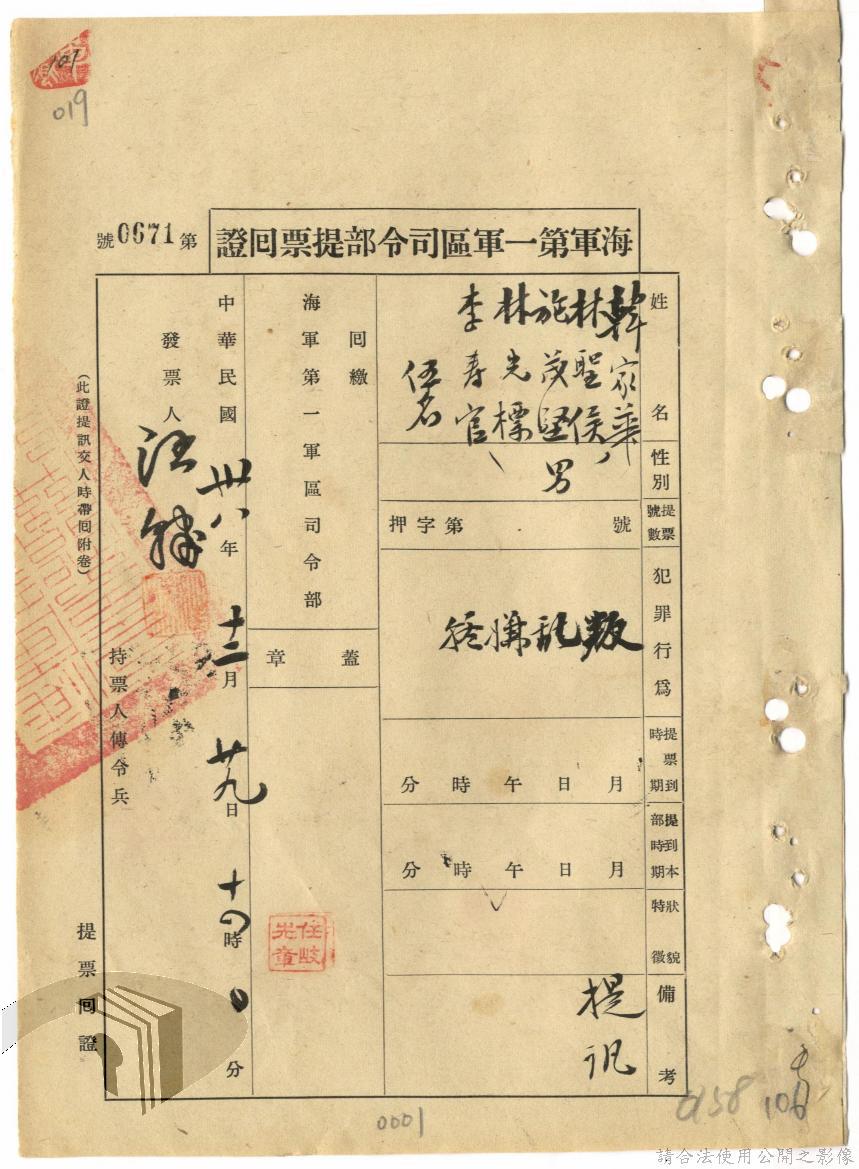 101
019
第0671號
海軍第一軍區司令部提票回證
姓名
韓家華
林聖侯
施茂堅
林光標
李寿官
伍名
性別
男
提票號數
字第號
押
犯罪行為
叛亂嫌疑
提票到時期
月日午時分
提到本部時期
月日午時分
狀貌特徵
備考
提訊
回繳
海軍第一軍區司令部
蓋章
任岐
光章
中華民國卅八年十二月廿九日十四時0分
發票人
汪
持票人傳令兵
(此證提訊交人時帶回附卷)
提票回證
0001
0158
106
請合法使用公開之影像